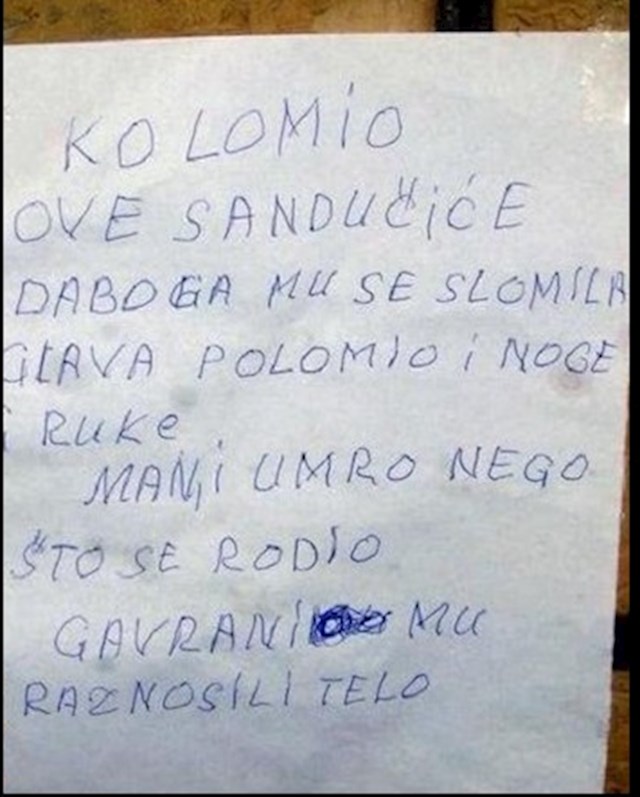 KO LOMIO
OVE SANDUČIĆE
DABOGA MU SE SLOMILA
GLAVA POLOMIO I NOGE
I RUKE
MANJI UMRO NEGO
ŠTO SE RODIO
GAVRANI MU
RAZNOSILI TELO